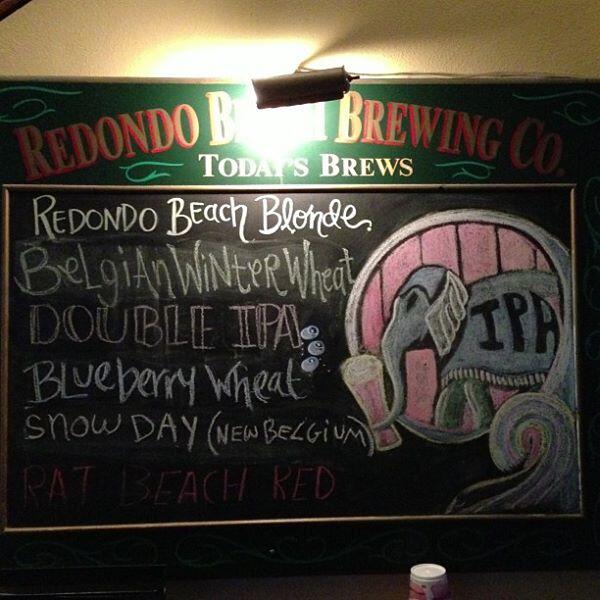 REDONDO BEACH BREWING CO.
TODAY'S BREWS
REDONDO BEACH BLONDE
BELGIAN WINTER WHEAT
DOUBLE IPA
BLUEBERRY WHEAT
SNOW DAY (NEW BELGIUM)
RAT BEACH RED
IPA